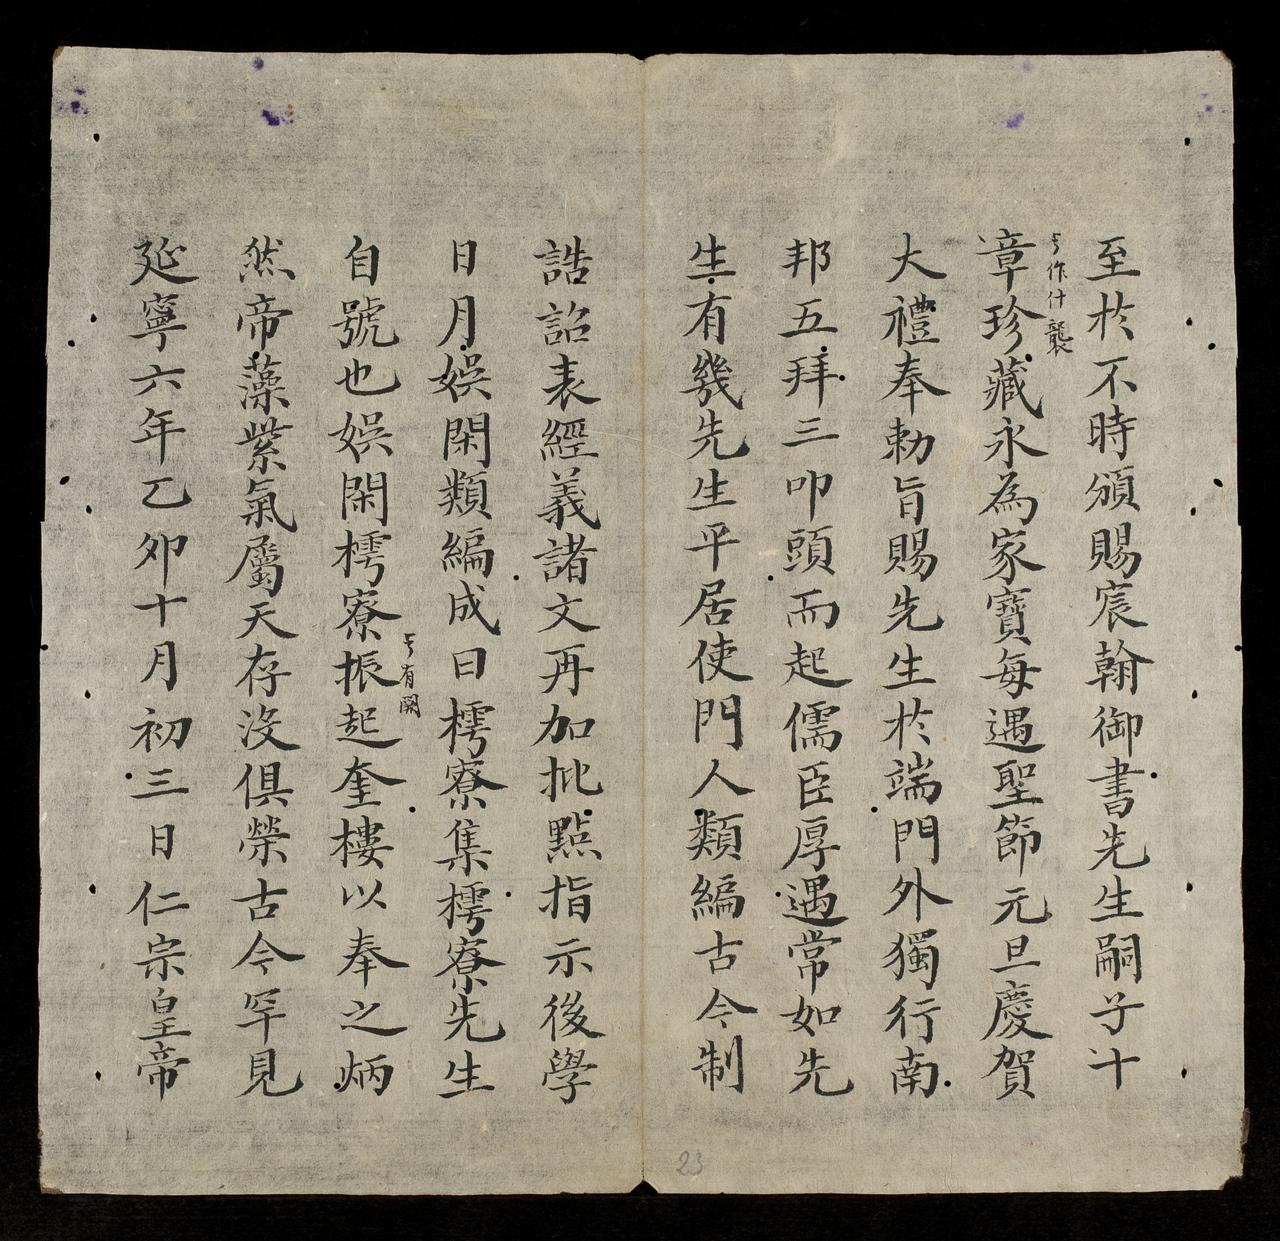 至扵不時頒賜宸翰御書先生嗣子十
亐作什襲
章珍藏永為家寶每遇聖節元旦慶賀
大禮奉勅旨賜先生扵端門外獨行南
邦五拜三叩頭而起儒臣厚遇常如先
生有幾先生平居使門人類編古今制
誥詔表經義諸文再加批點指示後學
日月娛閑類編成曰樗寮集樗寮先生
亐有闕
自號也娛閑樗寮振起奎樓以奉之炳
然帝藻紫氣屬天存沒俱榮古今罕見
延寧六年乙夘十月初三日仁宗皇帝
23